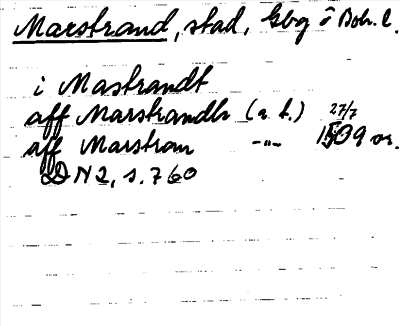 Marstrand, stad, Gbg o Boh. l.
i Mastrandt
aff Marstrandh (a. st.) 27/7
aff Marstran -"- 1509 or.
DN 2, s. 760